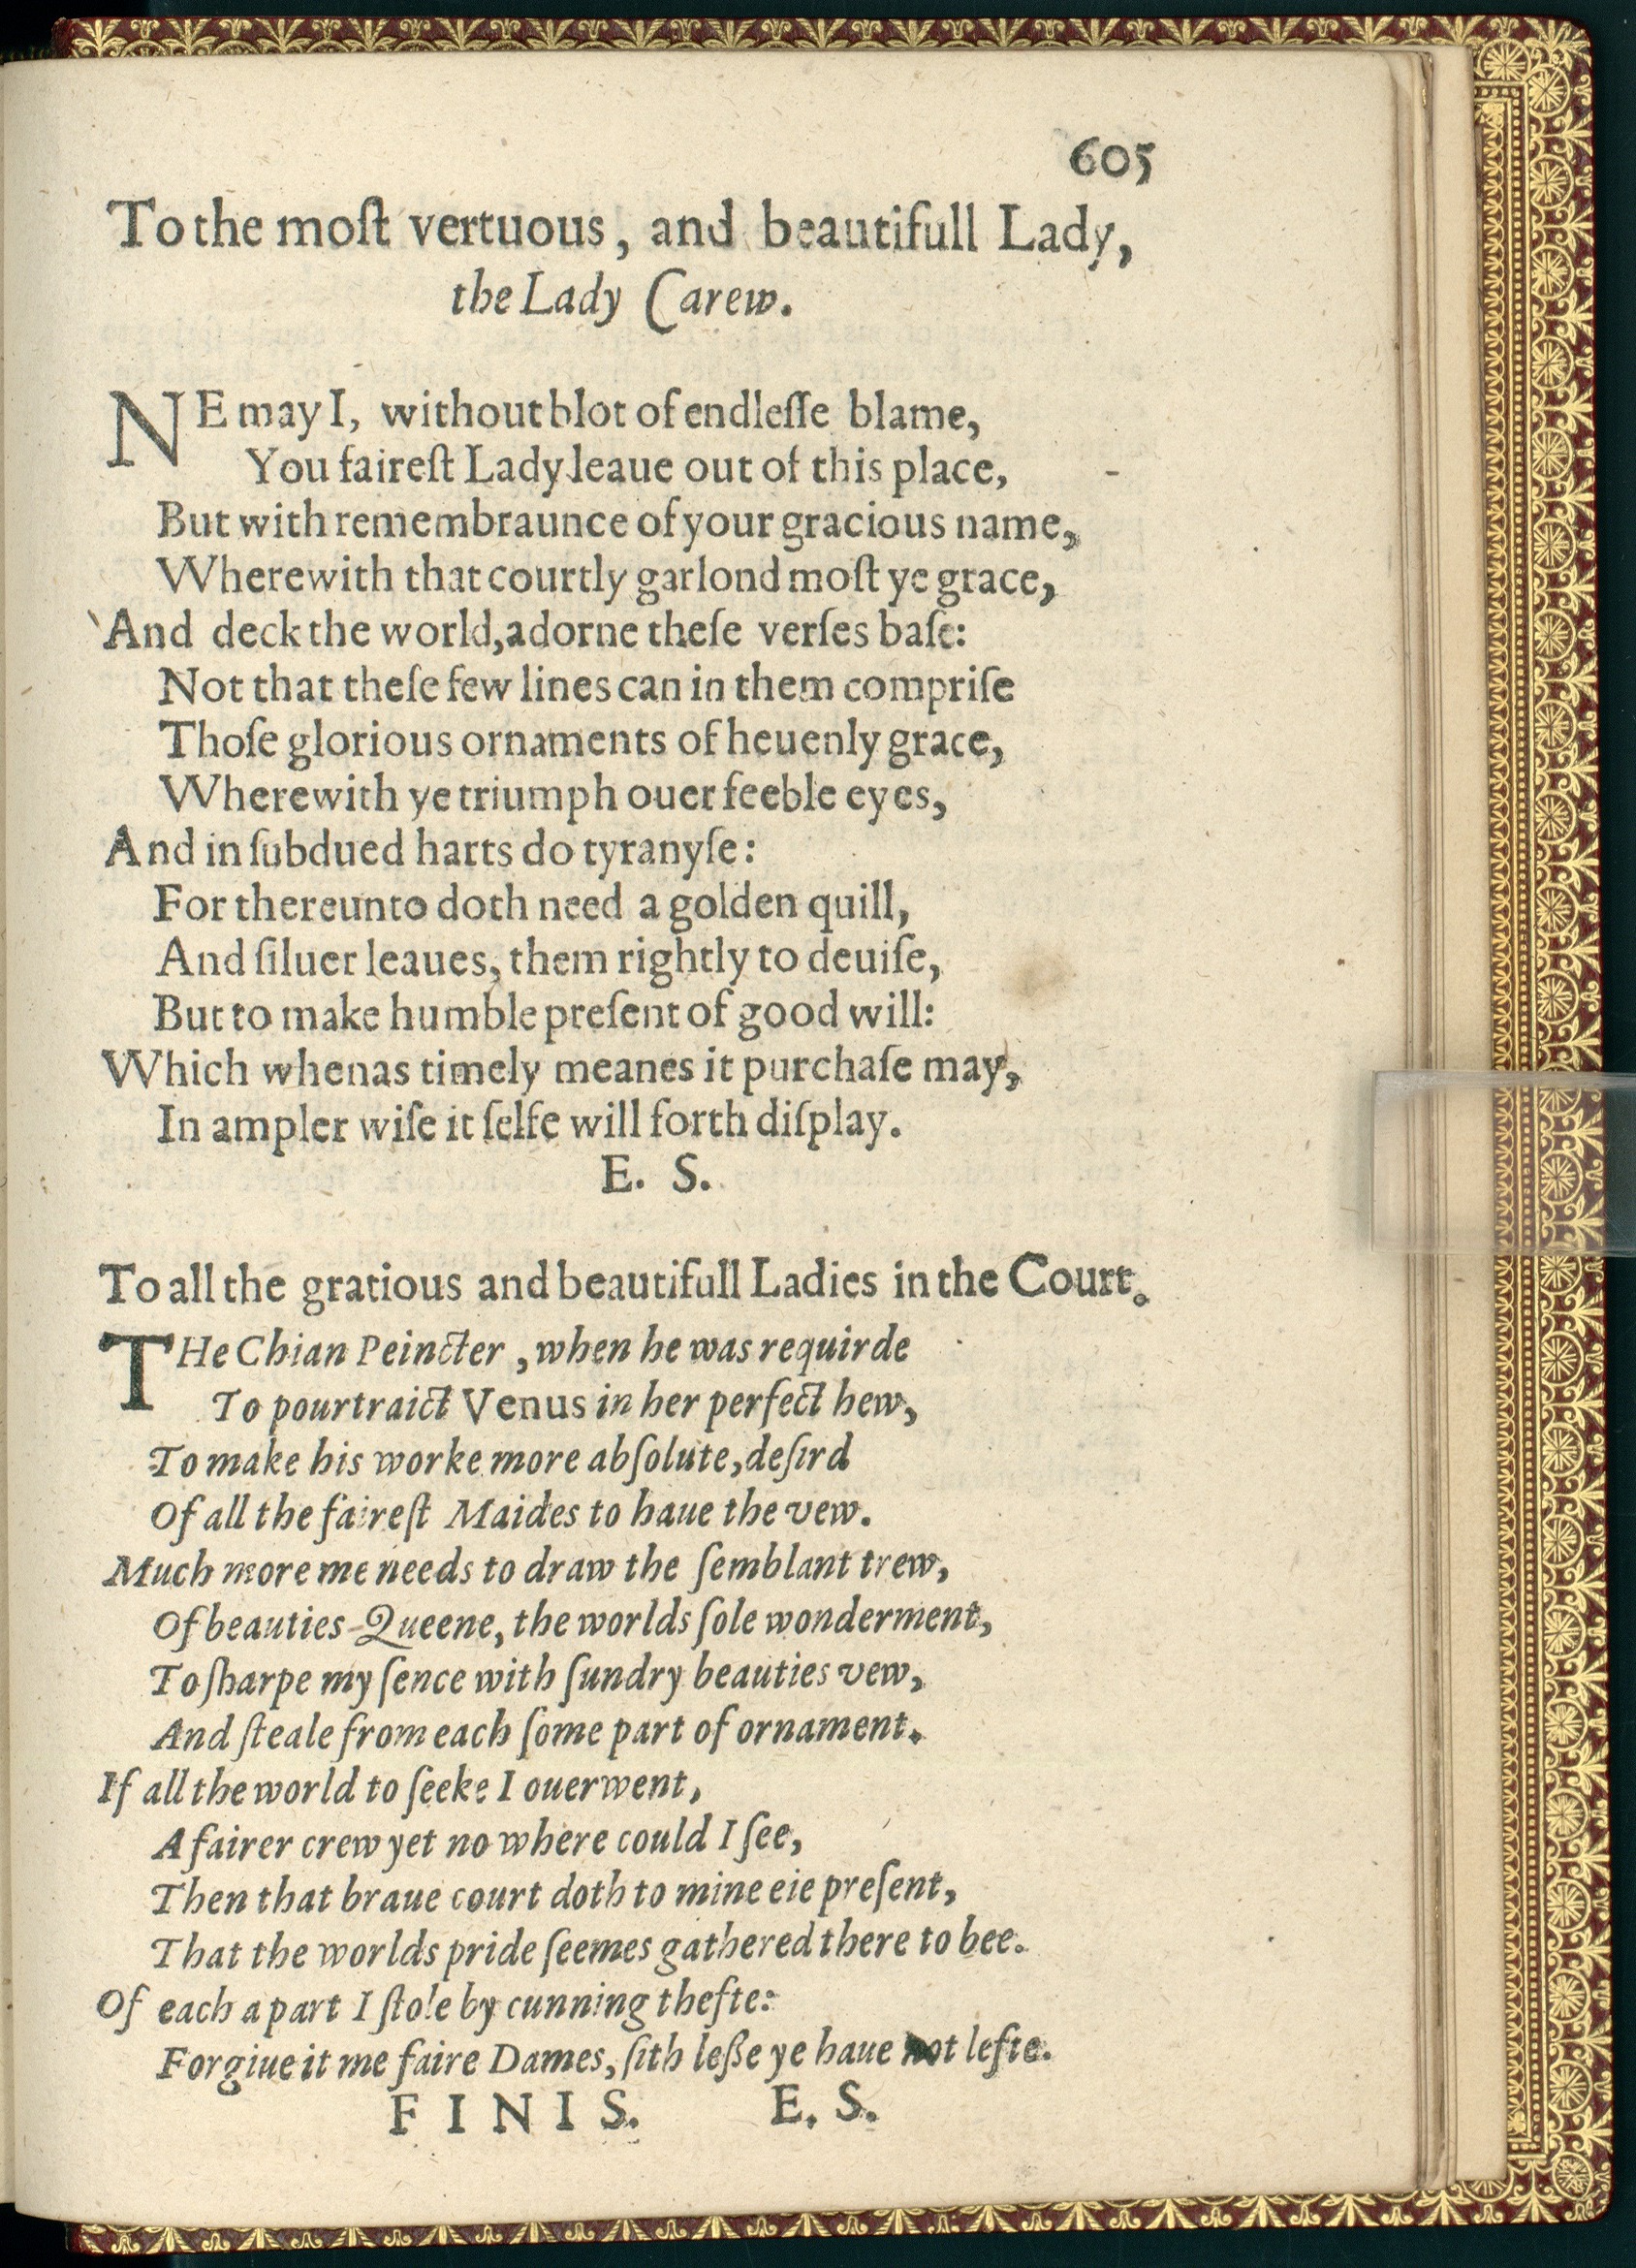 605
To the moſt vertuous, and beautifull Lady,
the Lady Carew.
NE may I, without blot of endleſſe blame,
You faireſt Lady leaue out of this place,
But with remembraunce of your gracious name,
Wherewith that courtly garlond moſt ye grace,
And deck the world, adorne theſe verſes baſe:
Not that theſe few lines can in them compriſe
Thoſe glorious ornaments of heuenly grace,
Wherewith ye triumph ouer feeble eyes,
And in ſubdued harts do tyranyſe:
For thereunto doth need a golden quill,
And ſiluer leaues, them rightly to deuiſe,
But to make humble preſent of good will:
Which whenas timely meanes it purchaſe may,
In ampler wiſe it ſelfe will forth diſplay.
E. S.
To all the gratious and beautifull Ladies in the Court.
THe Chian Peincter, when he was requirde
To pourtraict Venus in her perfect hew,
To make his worke more abſolute, deſird
Of all the faireſt Maides to haue the vew.
Much more me needs to draw the ſemblant trew,
Of beauties Queene, the worlds ſole wonderment,
To ſharpe my ſence with ſundry beauties vew,
And ſteale from each ſome part of ornament.
If all the world to ſeeke I ouerwent,
A fairer crew yet no where could I ſee,
Then that braue court doth to mine eie preſent,
That the worlds pride ſeemes gathered there to bee.
Of each a part I ſtole by cunning thefte:
Forgiue it me faire Dames, ſith leße ye haue not lefte.
FINIS. E. S.